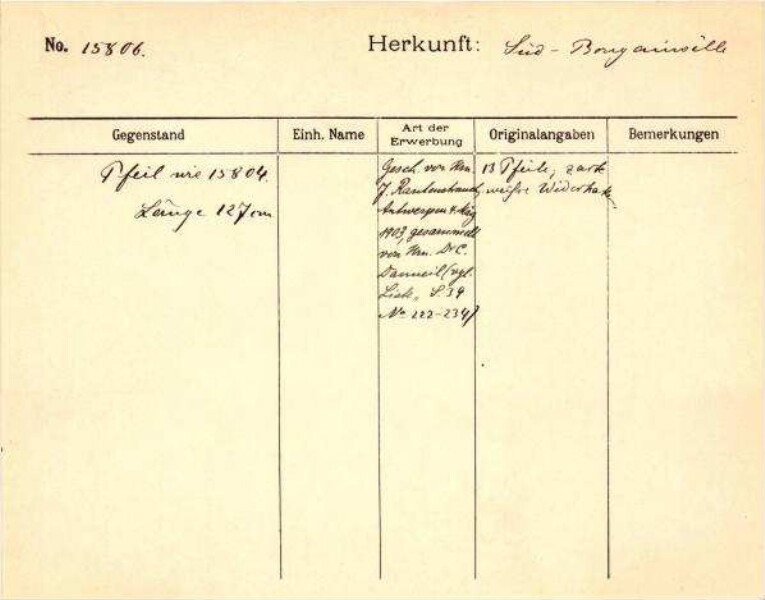 No. 15806. Herkunft: Süd-Bougainville
Gegenstand Einh. Name Art der Erwerbung Originalangaben Bemerkungen
Pfeil wie 15804.
Länge 127 cm
Gesch. von Hrn.
J. Rautenstrauch,
Antwerpen 4. Mäz
1903, gesammelt
von Hrn. Dr C.
Danneil (vgl.
Liste, S. 39
No 222-234)
13 Pfeile, zarte
weiße Widerhak